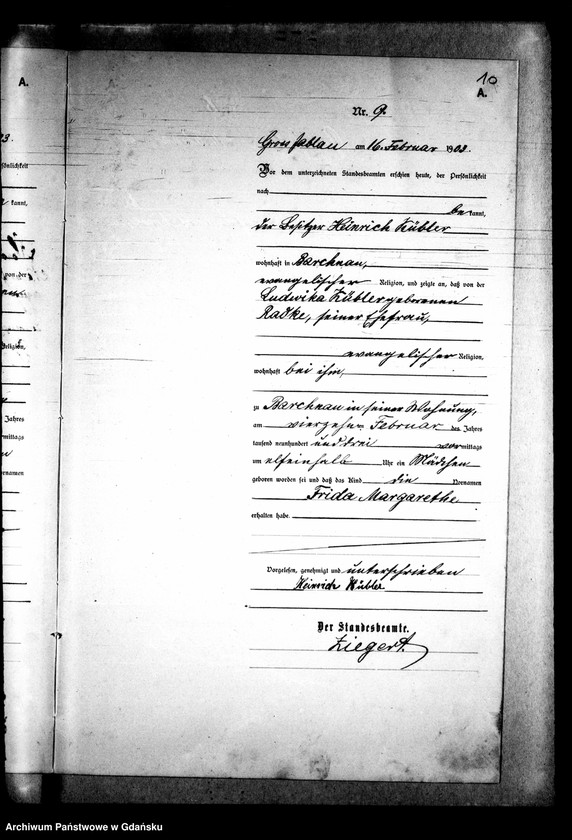 10
A.
A.
Nr. 9.
Gross Jablau am 16. Februar 1903.
Vor dem unterzeichneten Standesbeamten erschien heute, der Persönlichkeit
nach
bekannt,
der Besitzer Heinrich Kübler
wohnhaft in Barchnau,
evangelischer Religion, und zeigte an, daß von der
Ludwika Kübler geborenen
Radke, seiner Ehefrau,
evangelischer Religion,
wohnhaft bei ihm,
zu Barchnau in seiner Wohnung,
am vierzehn Februar des Jahres
tausend neunhundert und drei vormittags
um elfeinhalb Uhr ein Mädchen
geboren worden sei und daß das Kind die Vornamen
Frida Margarethe
erhalten habe.
Vorgelesen, genehmigt und unterschrieben
Heinrich Kübler
Der Standesbeamte.
Ziegert.
Archiwum Państwowe w Gdańsku